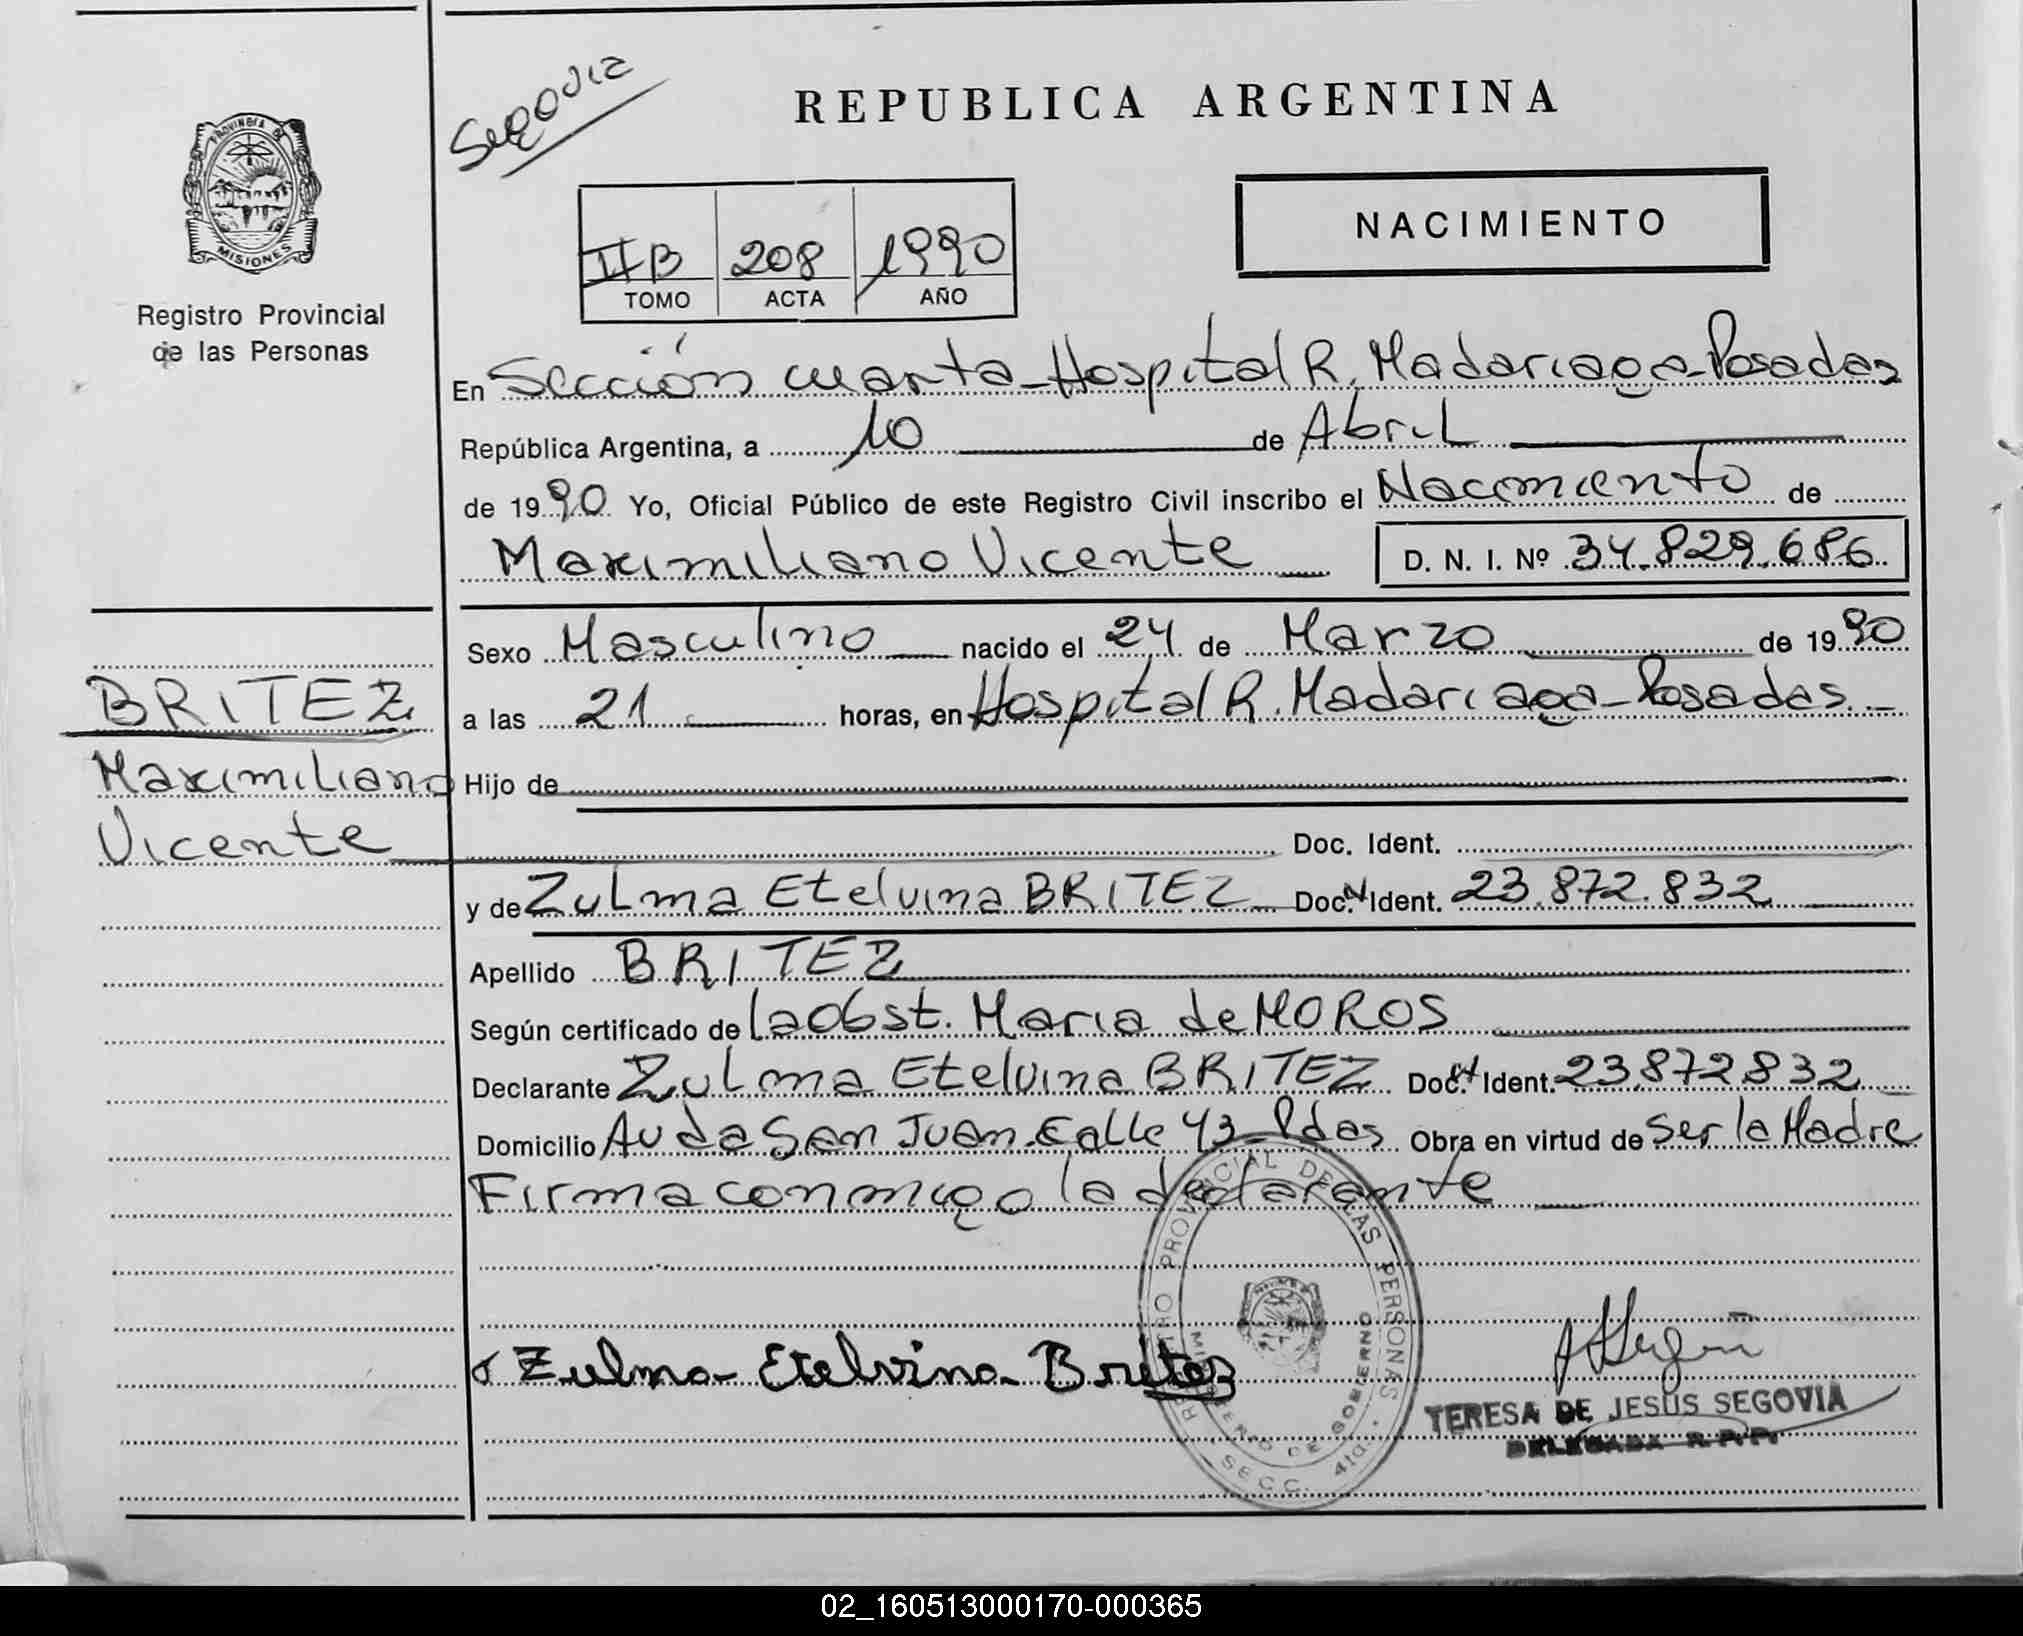 Segovia
REPUBLICA ARGENTINA
PROVINCIA DE
MISIONES
Registro Provincial
de las Personas
NACIMIENTO
IIB 208 1990
TOMO ACTA AÑO
En Sección cuarta - Hospital R. Madariaga - Posadas
República Argentina, a 10 de Abril
de 1990 Yo, Oficial Público de este Registro Civil inscribo el Nacimiento de
Maximiliano Vicente D. N. I. Nº 34.829.686
Sexo Masculino nacido el 24 de Marzo de 1990
a las 21 horas, en Hospital R. Madariaga - Posadas
BRITEZ
Maximiliano
Vicente
Hijo de
Doc. Ident.
y de Zulma Etelvina BRITEZ Doc. N Ident. 23.872.832
Apellido BRITEZ
Según certificado de la obst. Maria de MOROS
Declarante Zulma Etelvina BRITEZ Doc. N Ident. 23.872.832
Domicilio Avda San Juan. Calle 43 - Pdas Obra en virtud de Ser la Madre
Firma conmigo la declarante
Zulma Etelvina Britez
REGISTRO PROVINCIAL DE LAS PERSONAS
MINISTERIO DE GOBIERNO
SECC. 4ta.
TERESA DE JESUS SEGOVIA
DELEGADA R. P. P.
02_160513000170-000365